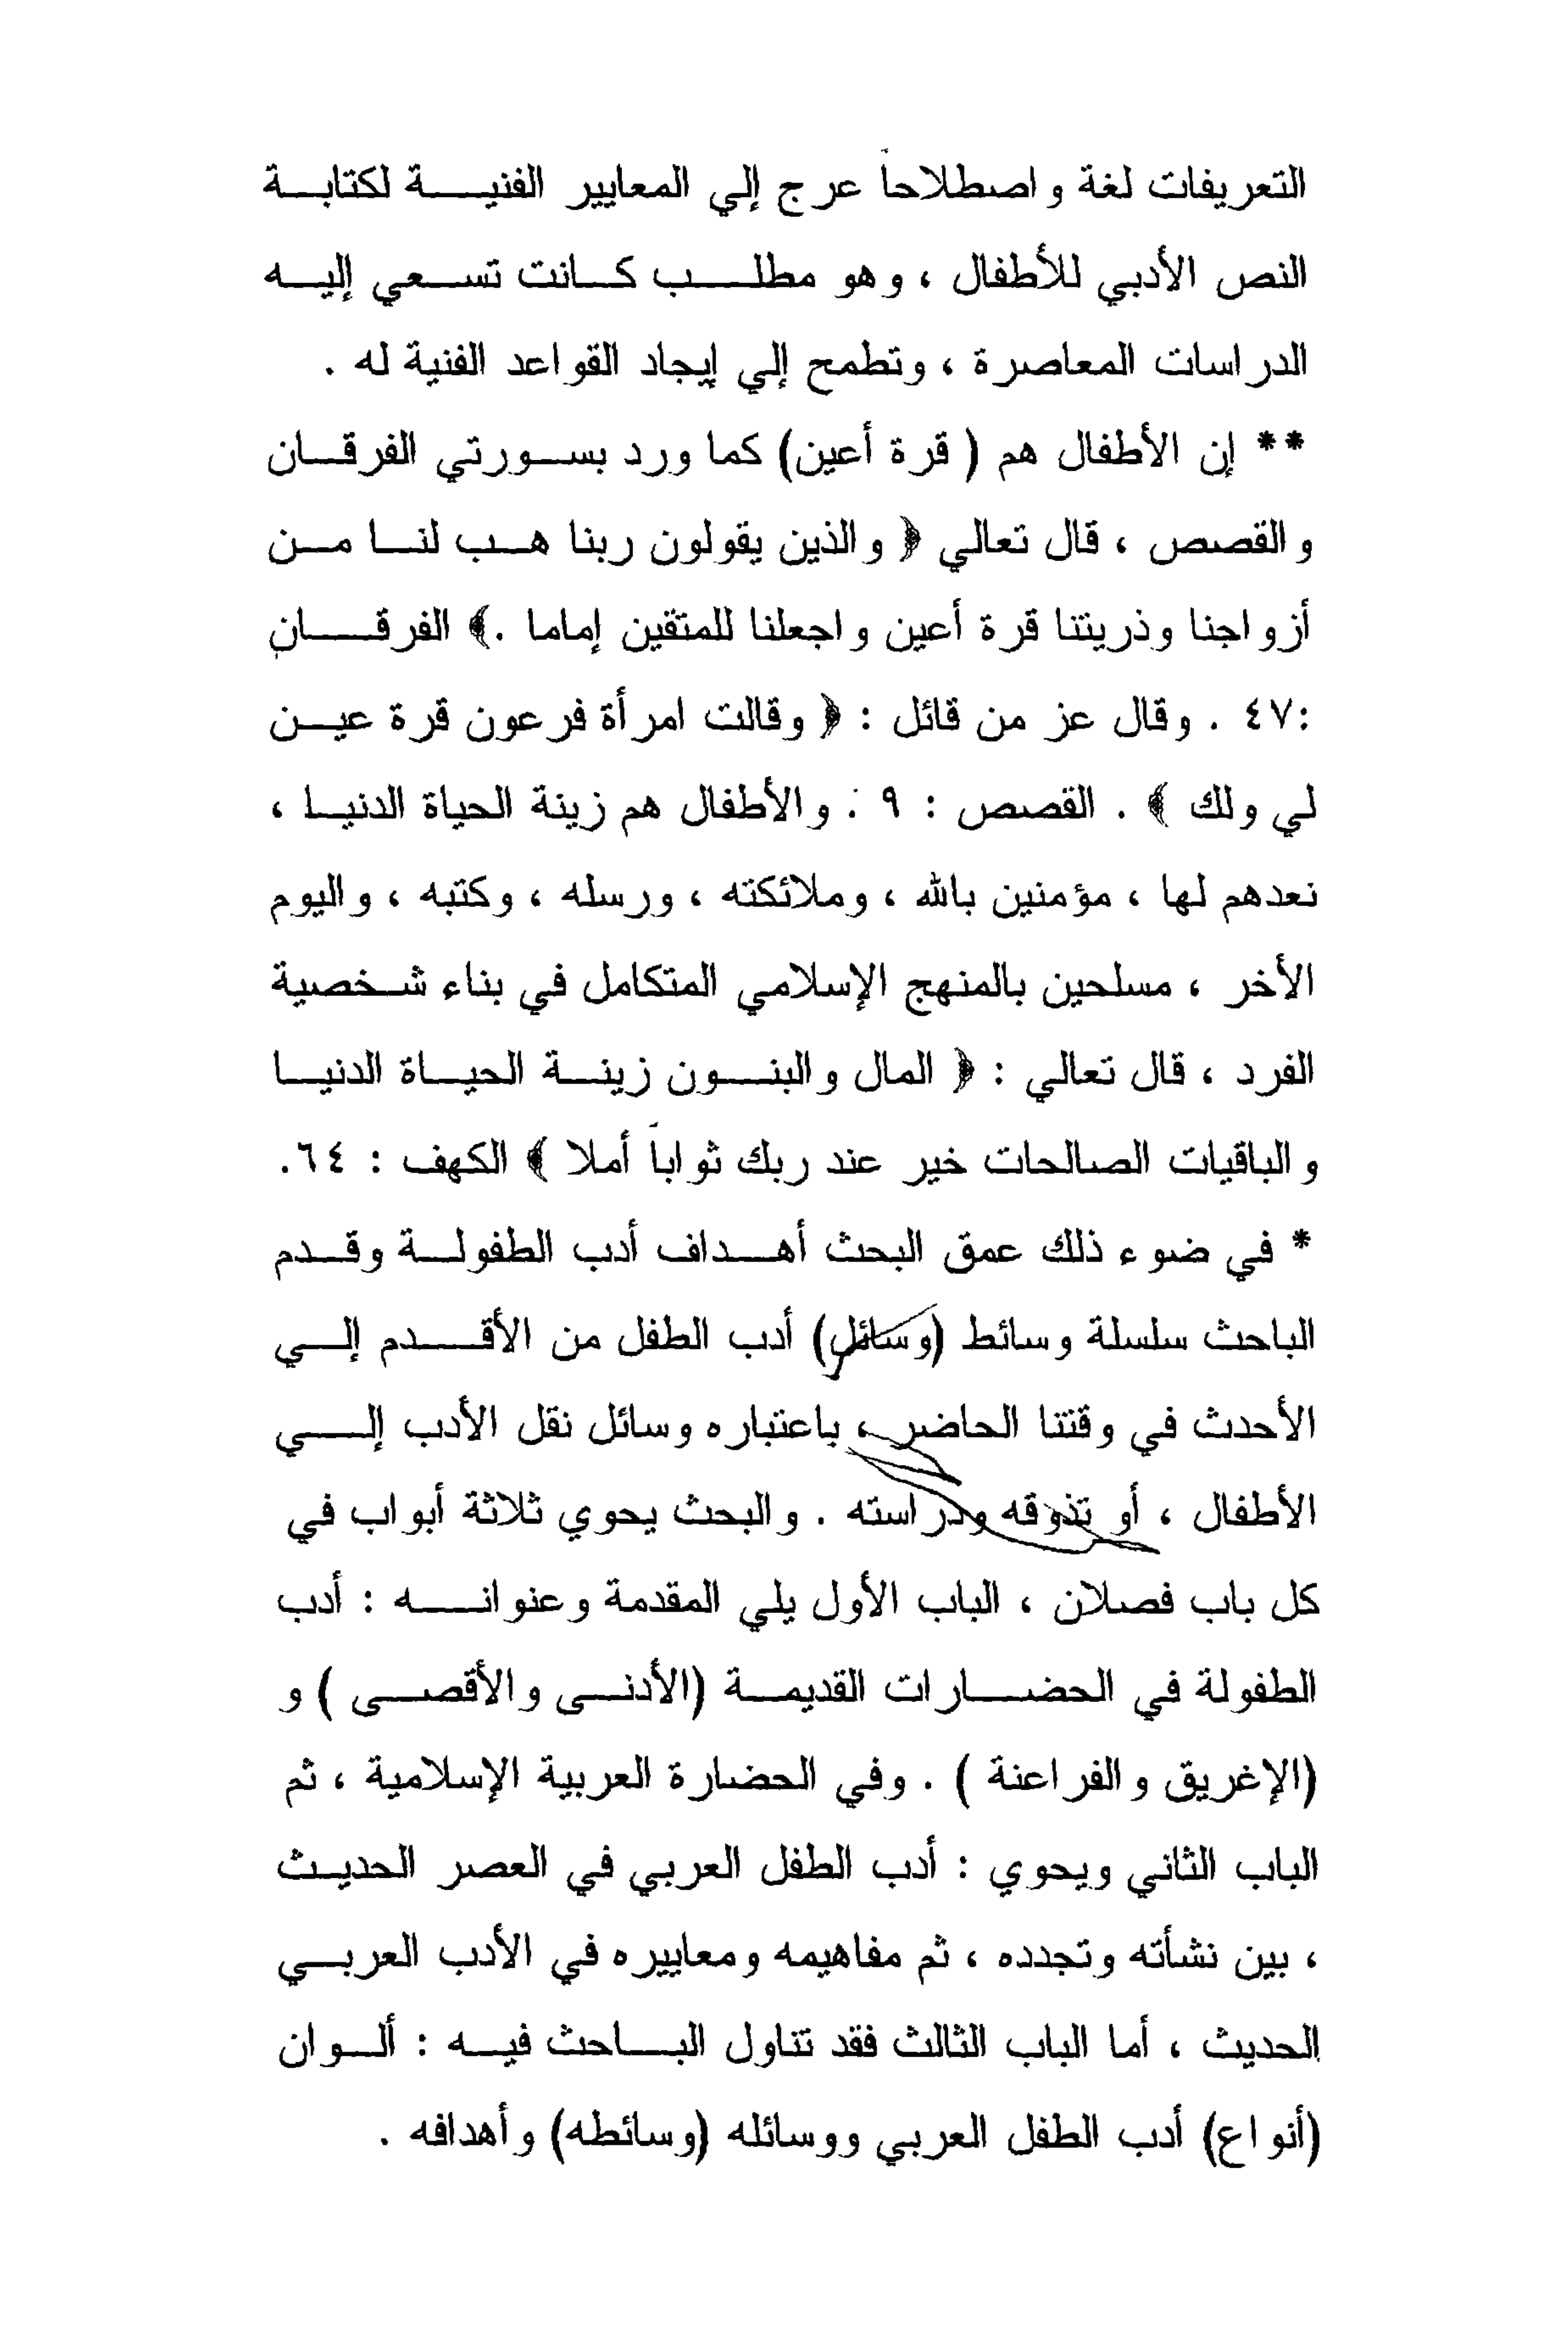 التعريفات لغة واصطلاحاً عرج إلي المعايير الفنيـــة لكتابـة
النص الأدبي للأطفال ، وهو مطلـــب كــانت تســعي إليــه
الدراسات المعاصرة ، وتطمح إلي إيجاد القواعد الفنية له .
** إن الأطفال هم ( قرة أعين) كما ورد بســورتي الفرقــان
والقصص ، قال تعالي ﴿ والذين يقولون ربنا هــب لنــا مــن
أزواجنا وذريتنا قرة أعين واجعلنا للمتقين إماما .﴾ الفرقـــان
:٤٧ . وقال عز من قائل : ﴿ وقالت امرأة فرعون قرة عيــن
لي ولك ﴾ . القصص : ٩ . والأطفال هم زينة الحياة الدنيــا ،
نعدهم لها ، مؤمنين بالله ، وملائكته ، ورسله ، وكتبه ، واليوم
الأخر ، مسلحين بالمنهج الإسلامي المتكامل في بناء شــخصية
الفرد ، قال تعالي : ﴿ المال والبنــون زينــة الحيــاة الدنيــا
والباقيات الصالحات خير عند ربك ثواباً أملا ﴾ الكهف : ٦٤.
* في ضوء ذلك عمق البحث أهــداف أدب الطفولــة وقــدم
الباحث سلسلة وسائط (وسائل) أدب الطفل من الأقـــدم إلــي
الأحدث في وقتتا الحاضر ، باعتباره وسائل نقل الأدب إلـــي
الأطفال ، أو تذوقه ودراسته . والبحث يحوي ثلاثة أبواب في
كل باب فصلان ، الباب الأول يلي المقدمة وعنوانـــه : أدب
الطفولة في الحضــارات القديمــة (الأدنــى والأقصــى ) و
(الإغريق والفراعنة ) . وفي الحضارة العربية الإسلامية ، ثم
الباب الثاني ويحوي : أدب الطفل العربي في العصر الحديــث
، بين نشأته وتجدده ، ثم مفاهيمه ومعاييره في الأدب العربــي
الحديث ، أما الباب الثالث فقد تناول البــاحث فيــه : ألــوان
(أنواع) أدب الطفل العربي ووسائله (وسائطه) وأهدافه .